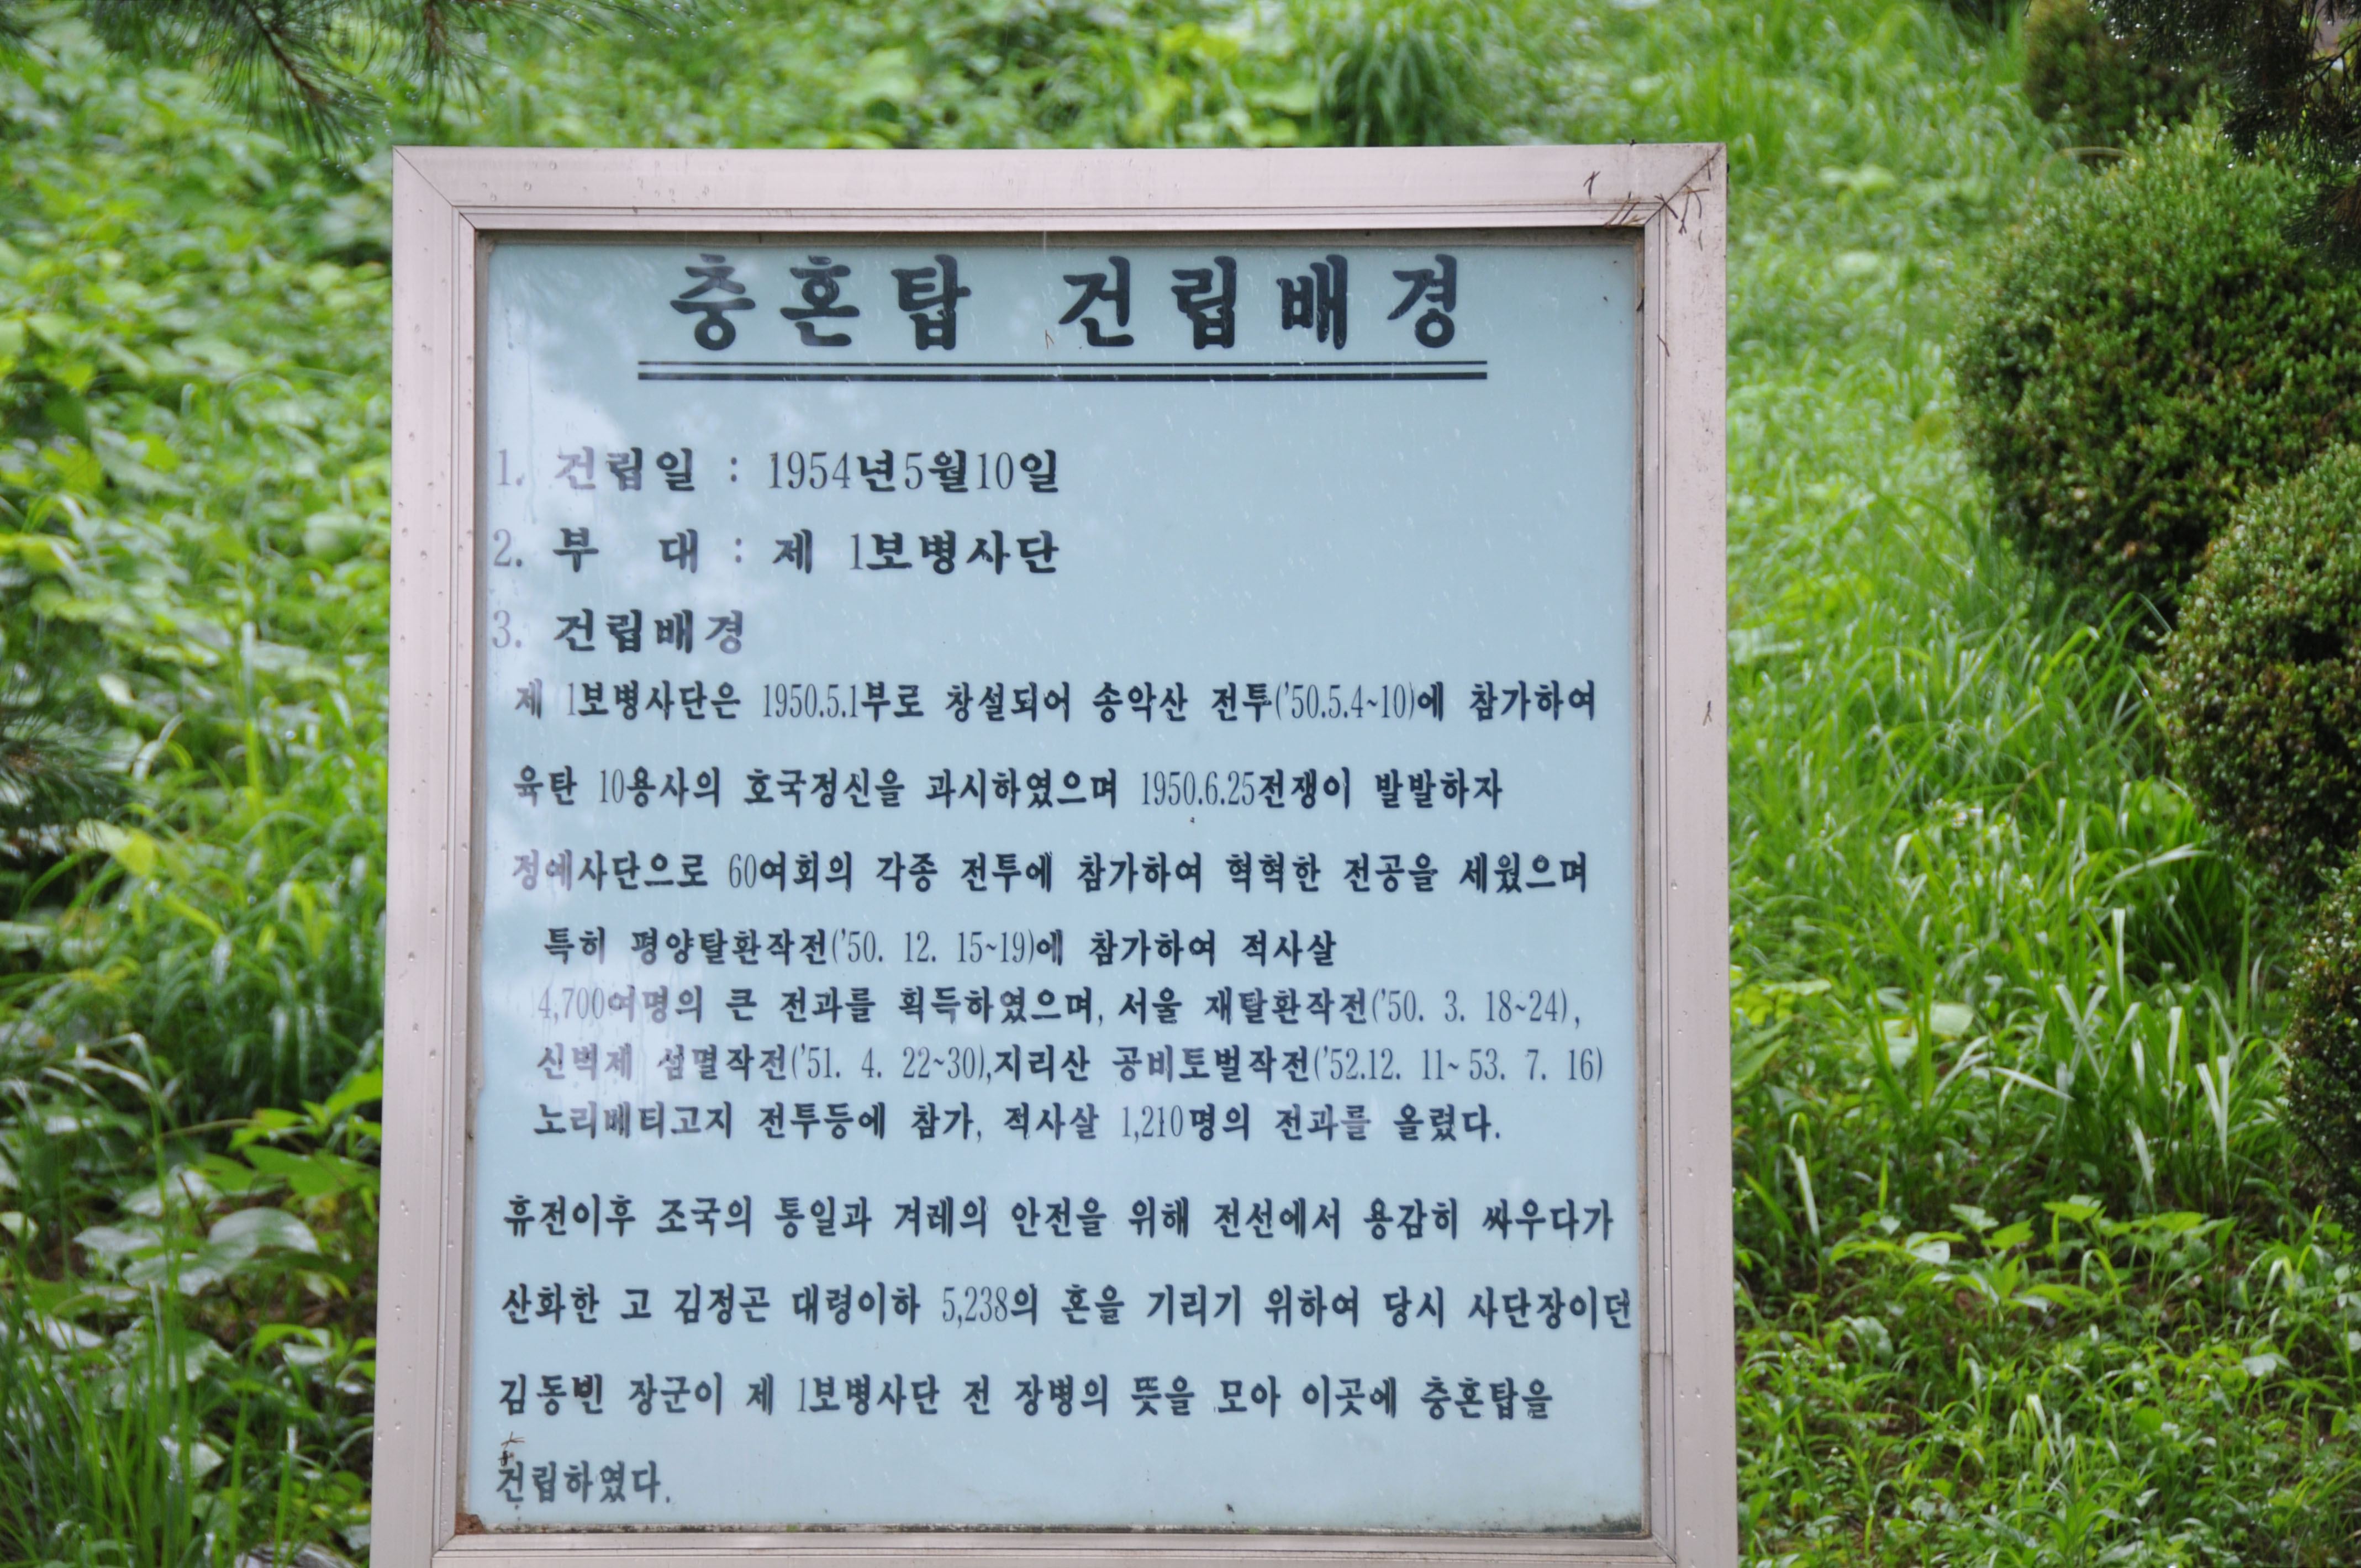 충혼탑 건립배경
1. 건립일 : 1954년5월10일
2. 부 대 : 제 1보병사단
3. 건립배경
제 1보병사단은 1950.5.1부로 창설되어 송악산 전투('50.5.4~10)에 참가하여
육탄 10용사의 호국정신을 과시하였으며 1950.6.25전쟁이 발발하자
정예사단으로 60여회의 각종 전투에 참가하여 혁혁한 전공을 세웠으며
특히 평양탈환작전('50. 12. 15~19)에 참가하여 적사살
4,700여명의 큰 전과를 획득하였으며, 서울 재탈환작전('50. 3. 18~24),
신벽제 섬멸작전('51. 4. 22~30),지리산 공비토벌작전('52.12. 11~ 53. 7. 16)
노리베티고지 전투등에 참가, 적사살 1,210명의 전과를 올렸다.
휴전이후 조국의 통일과 겨레의 안전을 위해 전선에서 용감히 싸우다가
산화한 고 김정곤 대령이하 5,238의 혼을 기리기 위하여 당시 사단장이던
김동빈 장군이 제 1보병사단 전 장병의 뜻을 모아 이곳에 충혼탑을
건립하였다.